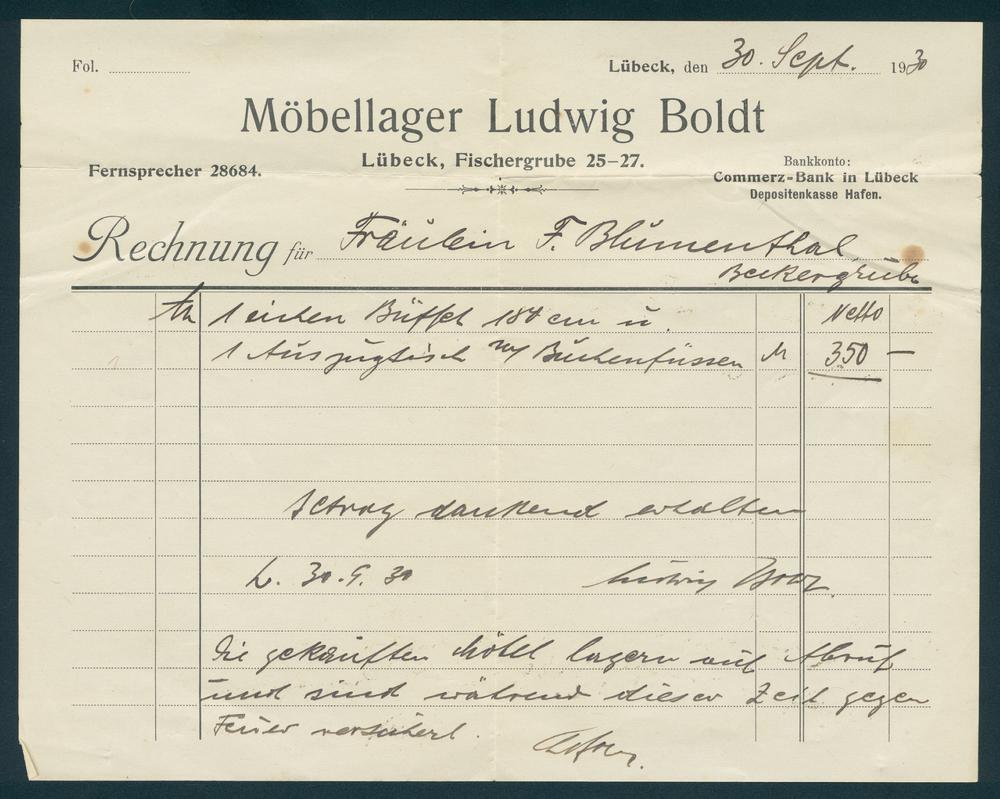 Fol.
Lübeck, den 30. Sept. 1930
Möbellager Ludwig Boldt
Lübeck, Fischergrube 25–27.
Fernsprecher 28684.
Bankkonto:
Commerz-Bank in Lübeck
Depositenkasse Hafen.
Rechnung für Fräulein F. Blumenthal
Beckergrube
1 eichen Büffet 180 cm u. Netto
1 Auszugtisch m/ Buchenfüssen M 350 —
Betrag dankend erhalten
L. 30.9.30 Ludwig Boldt.
Die gekauften Möbel lagern auf Abruf
und sind während dieser Zeit gegen
Feuer versichert.